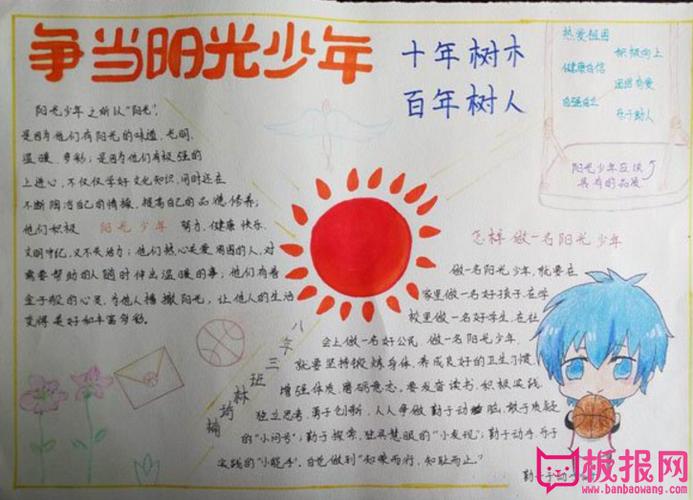 争当阳光少年
十年树木
百年树人
热爱祖国
积极向上
健康自信
团结友爱
自强自立
乐于助人
阳光少年应该
具有的品质
阳光少年之所以“阳光”,
是因为他们有阳光的味道,光明,
温暖,多彩;是因为他们有极强的
上进心,不仅仅学好文化知识,同时还在
不断陶冶自己的情操,提高自己的品德修养;
他们积极 阳光少年 努力,健康快乐,
文明守纪,又不失活力;他们热心关爱周围的人,对
需要帮助的人随时伸出温暖的手;他们有着
金子般的心灵,为他人播撒阳光,让他人的生活
变得美好和丰富多彩。
怎样做一名阳光少年
做一名阳光少年,就要在
家里做一名好孩子,在学
校里做一名好学生,在社
会上做一名好公民,做一名阳光少年,
就要坚持锻炼身体,养成良好的卫生习惯,
增强体质,磨砺意志。要发奋读书,积极实践,
独立思考,勇于创新,人人争做勤于动脑,敢于质疑
的“小问号”;勤于探索,独具慧眼的“小发现”;勤于动手,乐于
实践的“小能手”,自觉做到“知荣而行,知耻而止。”
八年三班
林
楠
板报网
www.banbaowang.com